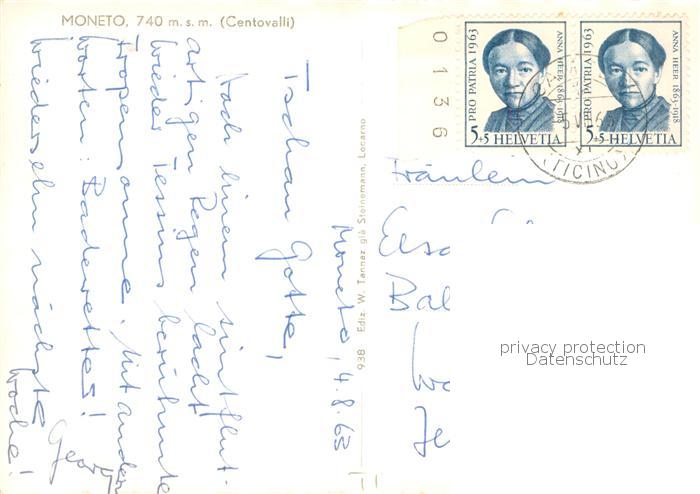 MONETO, 740 m. s. m. (Centovalli)
Moneto, 4.8.63
Tschau Gotte,
Nach einem sintflut-
artigen Regen lacht
wieder Tessins berühmte
Tropensonne. Mit andern
Worten: Badewetter!
Wiedersehn nächste
Woche!
Georg
938 Ediz. W. Tannaz già Steinemann, Locarno
0136
PRO PATRIA 1963
ANNA HEER 1863-1918
5+5 HELVETIA
PRO PATRIA 1963
ANNA HEER 1863-1918
5+5 HELVETIA
(TICINO)
Fräulein
Elsa
Bal
privacy protection
Datenschutz